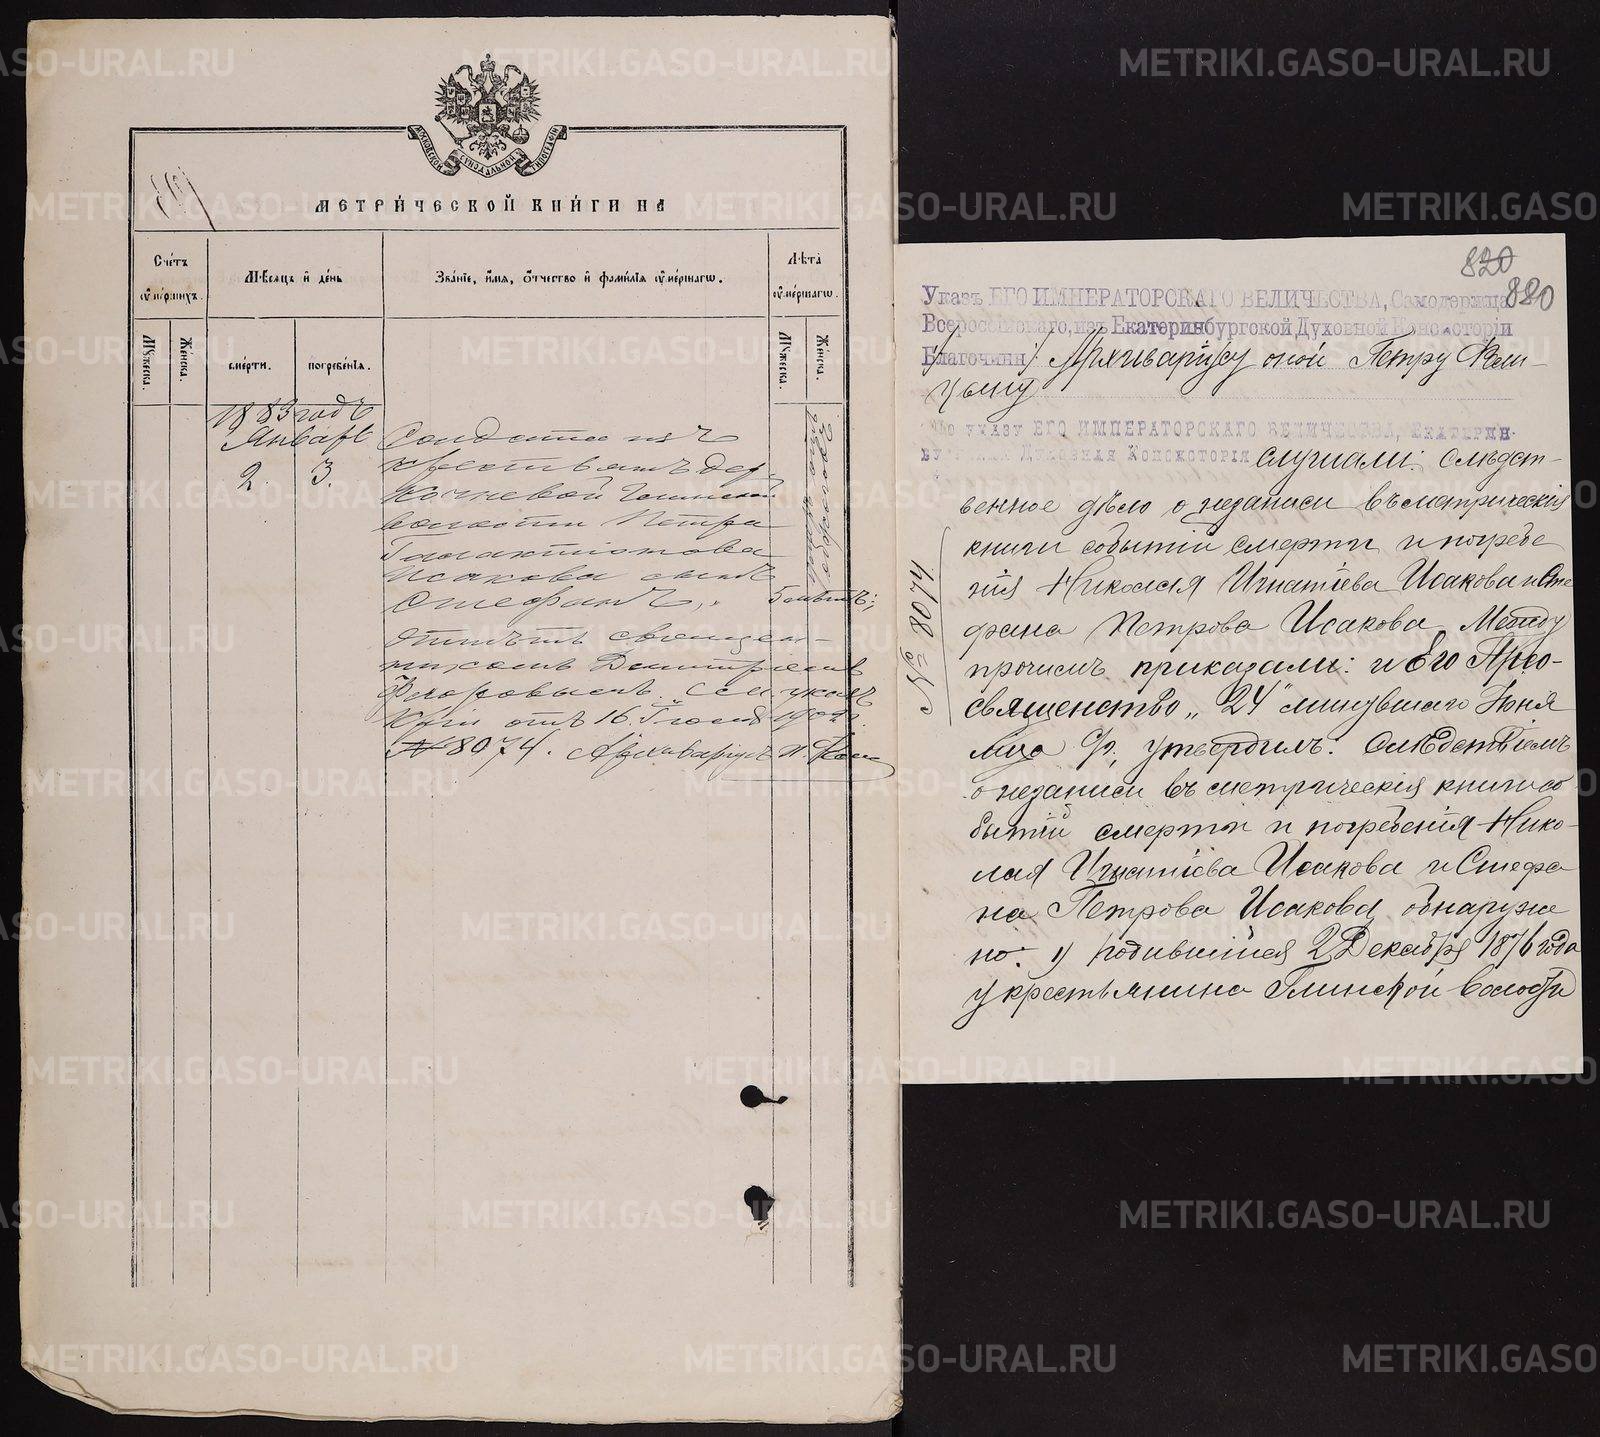 МОСКОВСКОЙ СѴНОДАЛЬНОЙ ТИПОГРАФІИ
МЕТРИ́ЧЕСКОЙ КНИ́ГИ НА
Сче́тъ ᲂу҆ме́ршихъ.
Мѣ́сѧцъ и҆ де́нь
Зва́нїе, и҆́мѧ, ѻ҆́тчество и҆ фами́лїѧ ᲂу҆ме́ршагѡ.
Лѣ́та ᲂу҆ме́ршагѡ.
Мꙋ́жеска.
Же́нска.
сме́рти.
погребе́нїѧ.
Мꙋ́жеска.
Же́нска.
1883 годъ
Январь
2. 3.
Солдатъ изъ
крестьянъ дер.
Кочневой Глинской
волости Петра
Галактіонова
Исакова сынъ
Стефанъ.
5 лѣтъ;
Отпѣтъ священ-
никомъ Димитріемъ
Ѳедоровымъ. См. указъ
К-ріи отъ 16 Іюля 1902 г.
№ 8074. Архиваріусъ П.
820
880
Указъ ЕГО ИМПЕРАТОРСКАГО ВЕЛИЧЕСТВА, Самодержца
Всероссійскаго, изъ Екатеринбургской Духовной Консисторіи
Благочинн Архиваріусу оной Петру
По указу ЕГО ИМПЕРАТОРСКАГО ВЕЛИЧЕСТВА, Екатерин-
бургская Духовная Консисторія слушали: слѣдст-
венное дѣло о незаписи въ метрическія
книги событій смерти и погребе
нія Николая Игнатіева Исакова и Сте
фана Петрова Исакова. Между
прочимъ приказали: и Его Прео-
священство „24" минувшаго Іюня
мца с/г, утвердилъ: Слѣдствіемъ
о незаписи въ метрическія книги со
бытій смерти и погребенія Нико-
лая Игнатіева Исакова и Стефа
на Петрова Исакова обнаруже
но: 1) родившійся 2 Декабря 1876 года
у крестьянина Глинской волости
№ 8074
METRIKI.GASO-URAL.RU